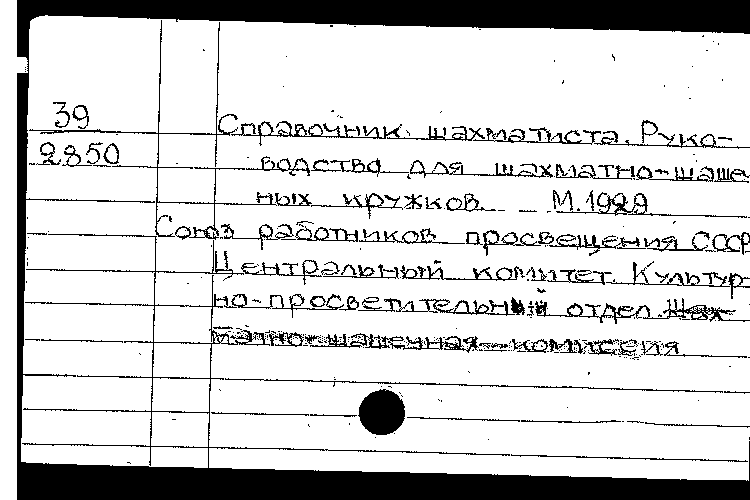 39
2850
Справочник шахматиста. Руко-
водство для шахматно-шаше-
ных кружков. М. 1929
Союз работников просвещения СССР
Центральный комитет. Культур-
но-просветительный отдел. Шах-
матно-шашечная комиссия